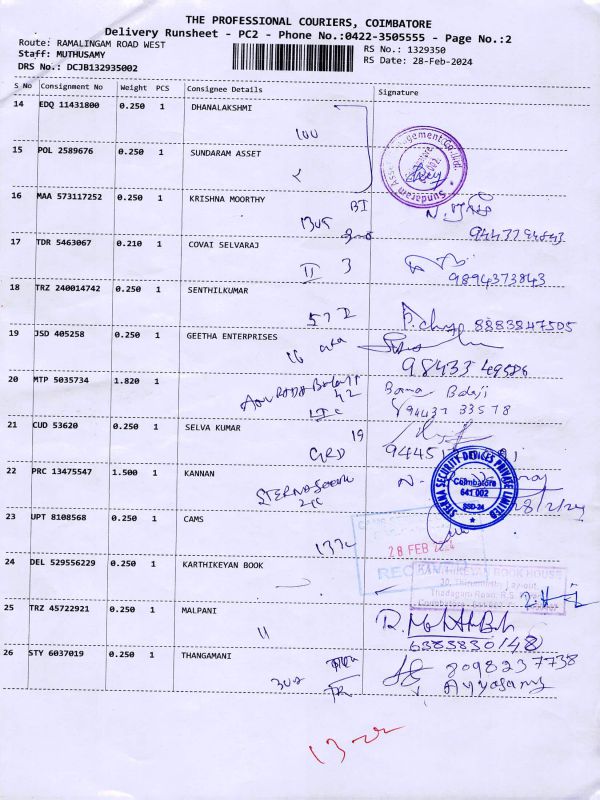 THE PROFESSIONAL COURIERS, COIMBATORE
Delivery Runsheet - PC2 - Phone No.:0422-3505555 - Page No.:2
Route: RAMALINGAM ROAD WEST
RS No.: 1329350
Staff: MUTHUSAMY
RS Date: 28-Feb-2024
DRS No.: DCJB132935002
S No Consignment No Weight PCS Consignee Details Signature
14 EDQ 11431800 0.250 1 DHANALAKSHMI
100
15 POL 2589676 0.250 1 SUNDARAM ASSET
16 MAA 573117252 0.250 1 KRISHNA MOORTHY
17 TDR 5463067 0.210 1 COVAI SELVARAJ
II 3
9894373843
18 TRZ 240014742 0.250 1 SENTHILKUMAR
8883847505
19 JSD 405258 0.250 1 GEETHA ENTERPRISES
98433 49586
20 MTP 5035734 1.820 1
Bama Balaji
94437 33578
21 CUD 53620 0.250 1 SELVA KUMAR
19
GRD
94451
22 PRC 13475547 1.500 1 KANNAN
STERNA SECURITY DEVICES PRIVATE LIMITED
Coimbatore
641 002
SSD-24
23 UPT 8108568 0.250 1 CAMS
28 FEB 2024
24 DEL 529556229 0.250 1 KARTHIKEYAN BOOK
BOOK HOUSE
Thadagam Road, R.S.
25 TRZ 45722921 0.250 1 MALPANI
11
6383830148
26 STY 6037019 0.250 1 THANGAMANI
302
8098237738
Ayyasamy
13-22